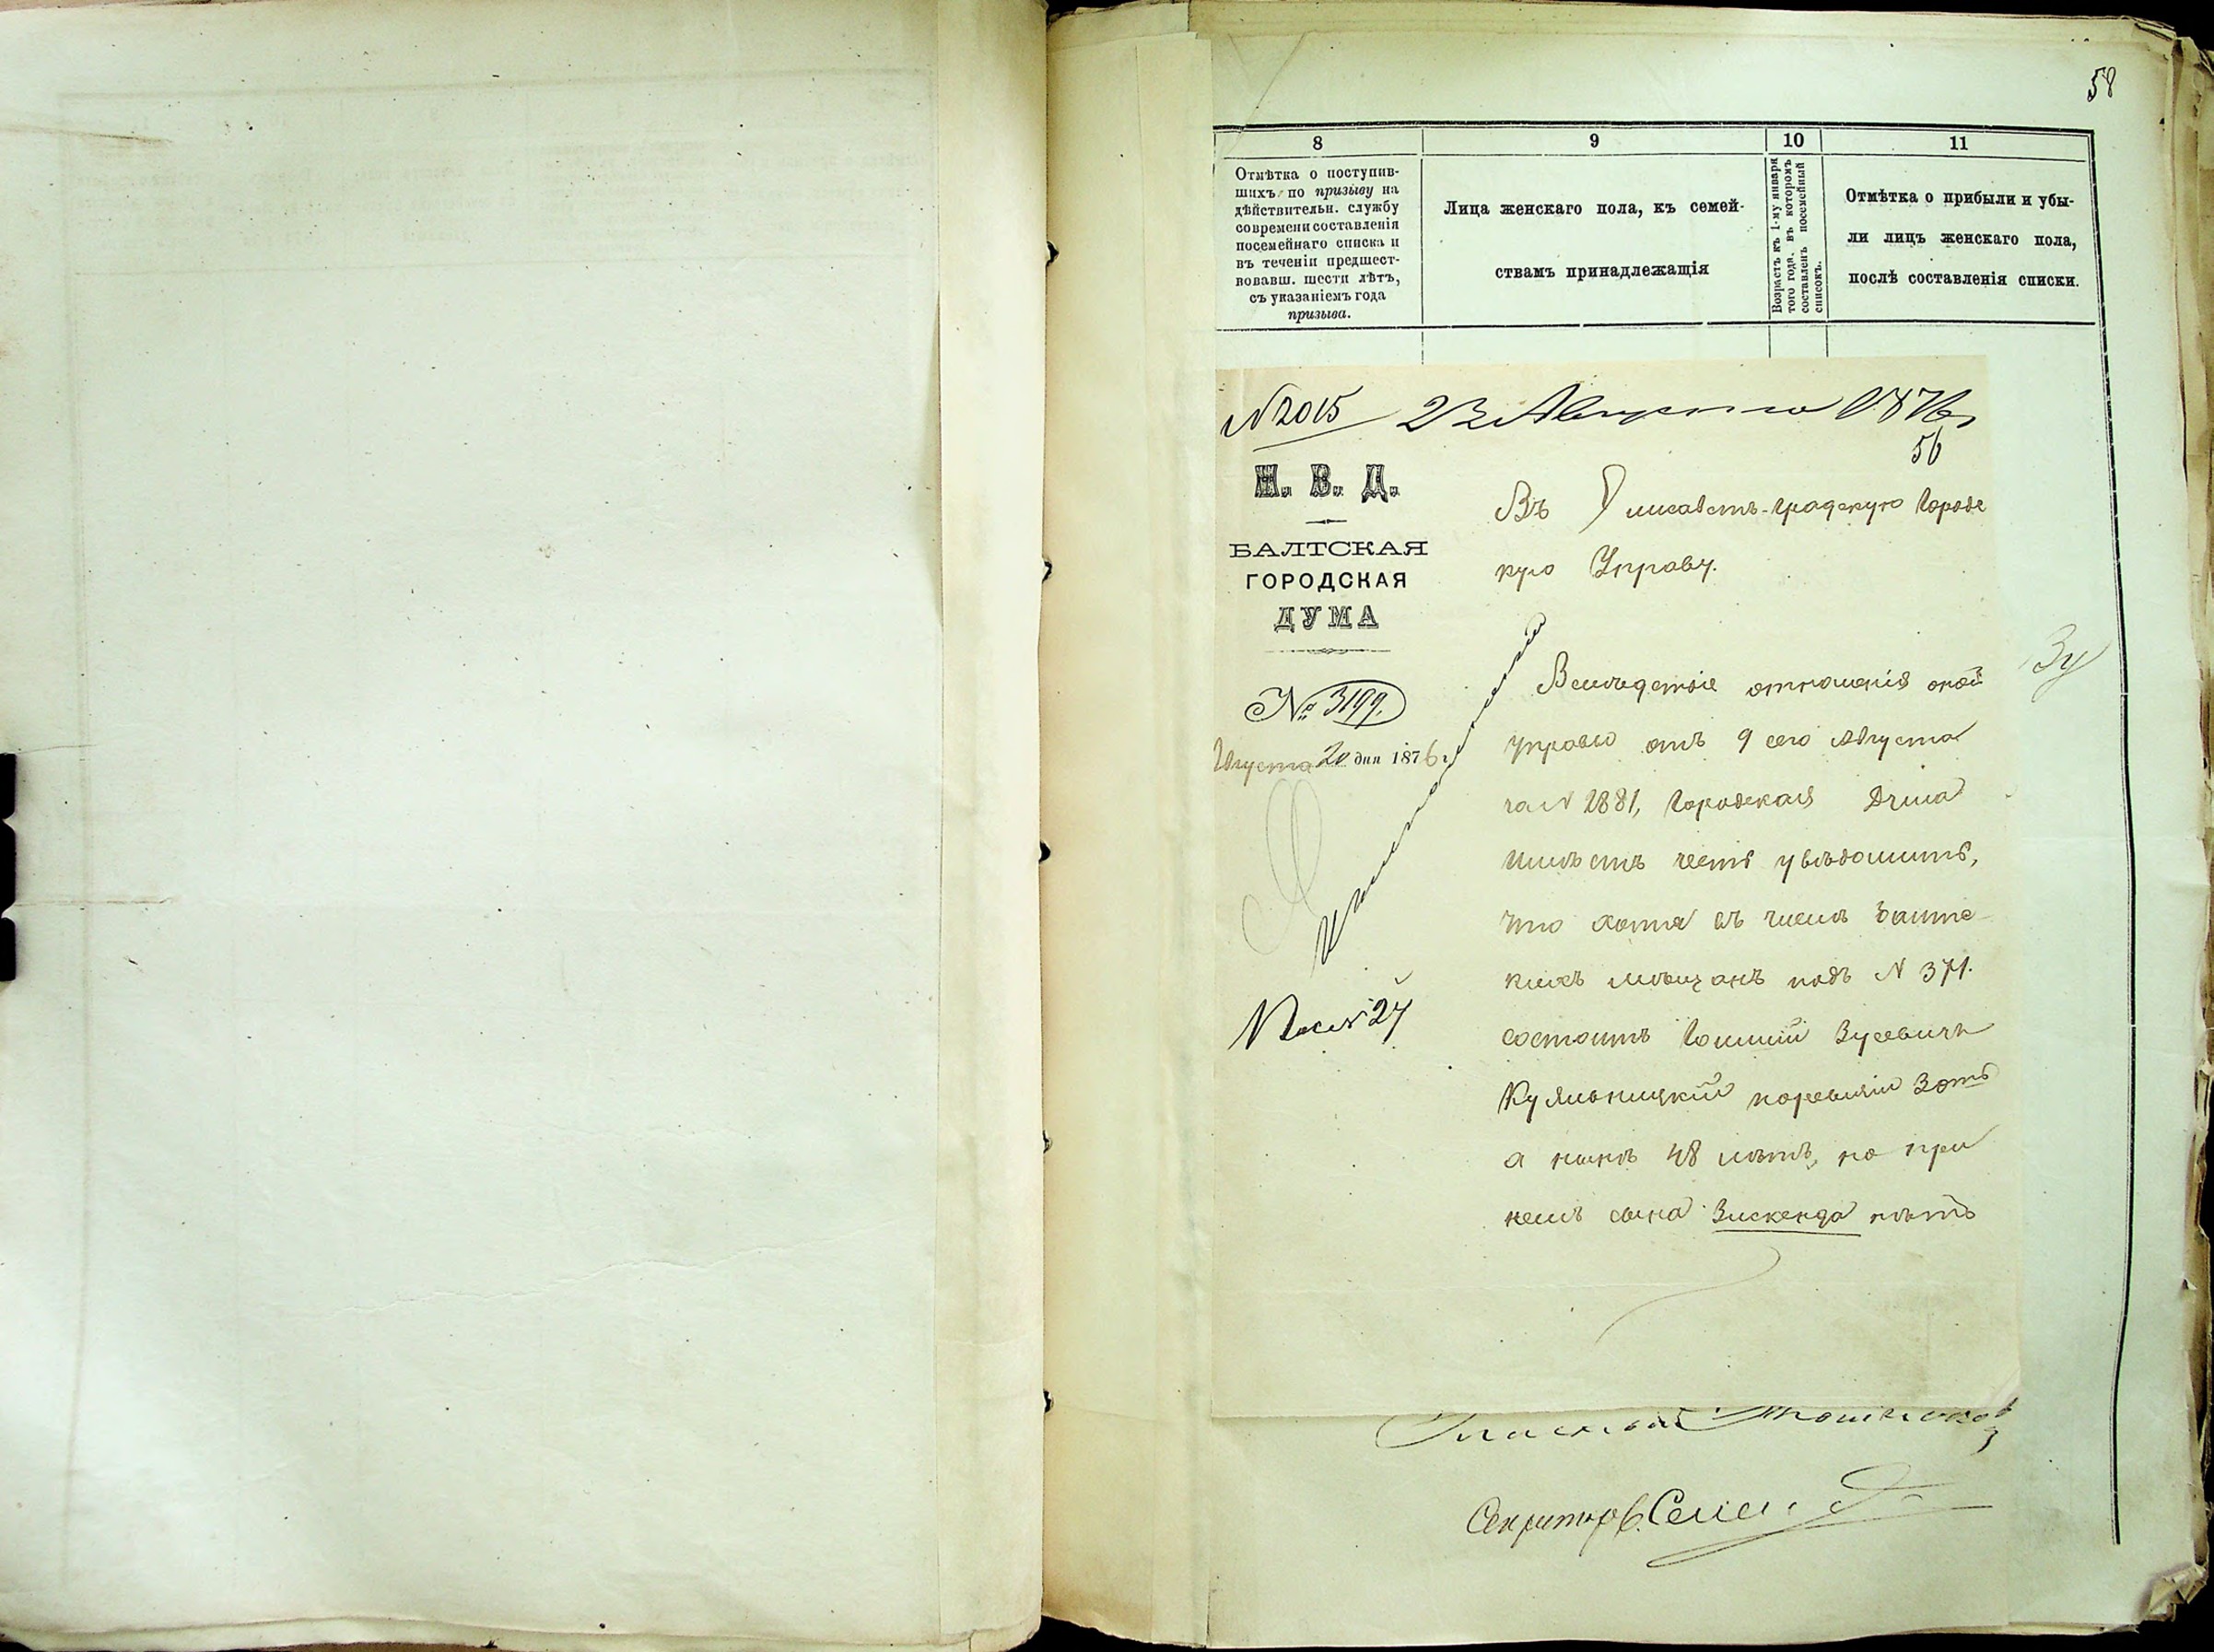 58
8
9
10
11
Отмѣтка о поступив-
шихъ по призыву на
дѣйствительн. службу
современи составленія
посемейнаго списка и
въ теченіи предшест-
вовавш. шести лѣтъ,
съ указаніемъ года
призыва.
Лица женскаго пола, къ семей-
ствамъ принадлежащія
Возрастъ къ 1-му января
того года, въ которомъ
составленъ посемейный
списокъ.
Отмѣтка о прибыли и убы-
ли лицъ женскаго пола,
послѣ составленія списки.
N 2015 23 Августа 1876 г
56
М. В. Д.
БАЛТСКАЯ
ГОРОДСКАЯ
ДУМА
№ 3199.
Августа 20 дня 1876 г.
24
Въ Елисаветъ-градскую Городс
кую Управу.
Вслѣдствіе отношенія оной
Зу
управы отъ 9 сего Августа
за N 2881, Городская Дума
имѣетъ честь увѣдомить,
что хотя въ числѣ Балтс
кихъ мѣщанъ подъ N 371.
состоитъ Зусевичъ
Кульницкій ревизіи
а нынѣ 48 лѣтъ, но при
немъ сына Зискенда нѣтъ
Гласный
Секретарь